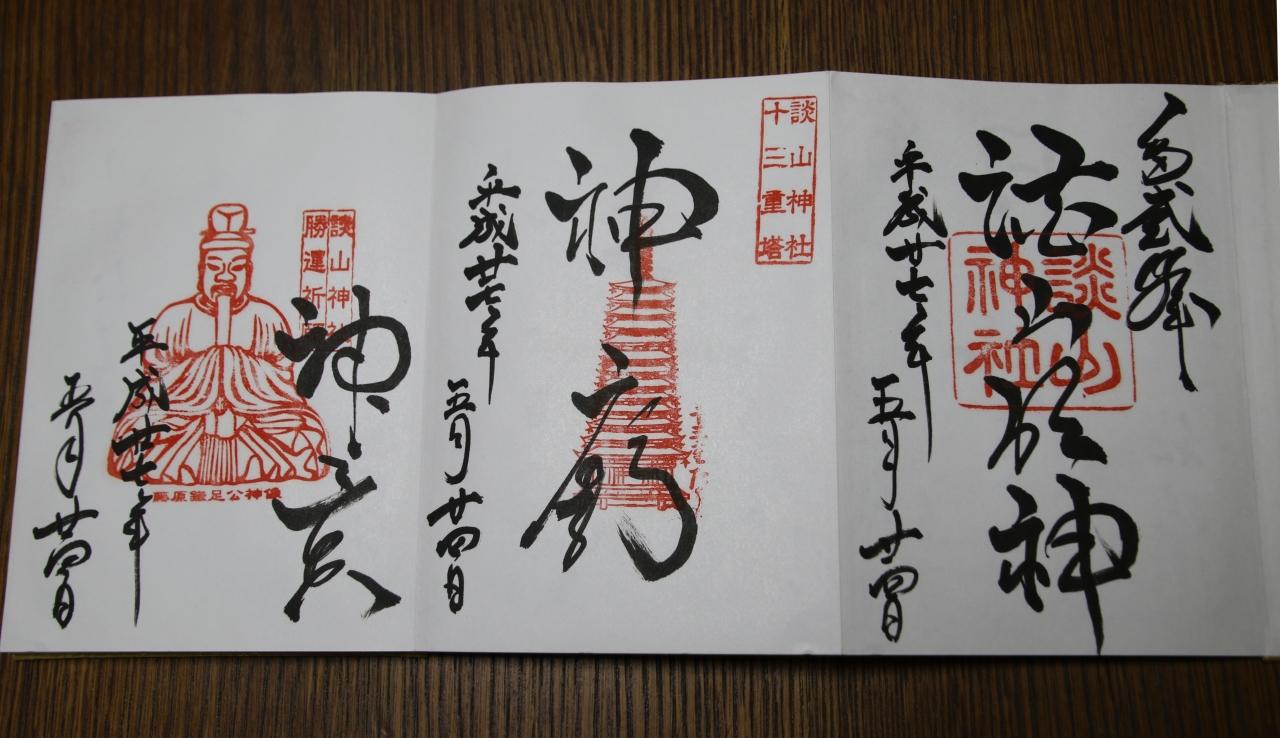 多武峯
神
談山
神社
平成廿七年
五月廿四日
談山神社
十三重塔
神廟
平成廿七年
五月廿四日
談山神社
勝運祈願
神
平成廿七年
五月廿四日
藤原鎌足公神像